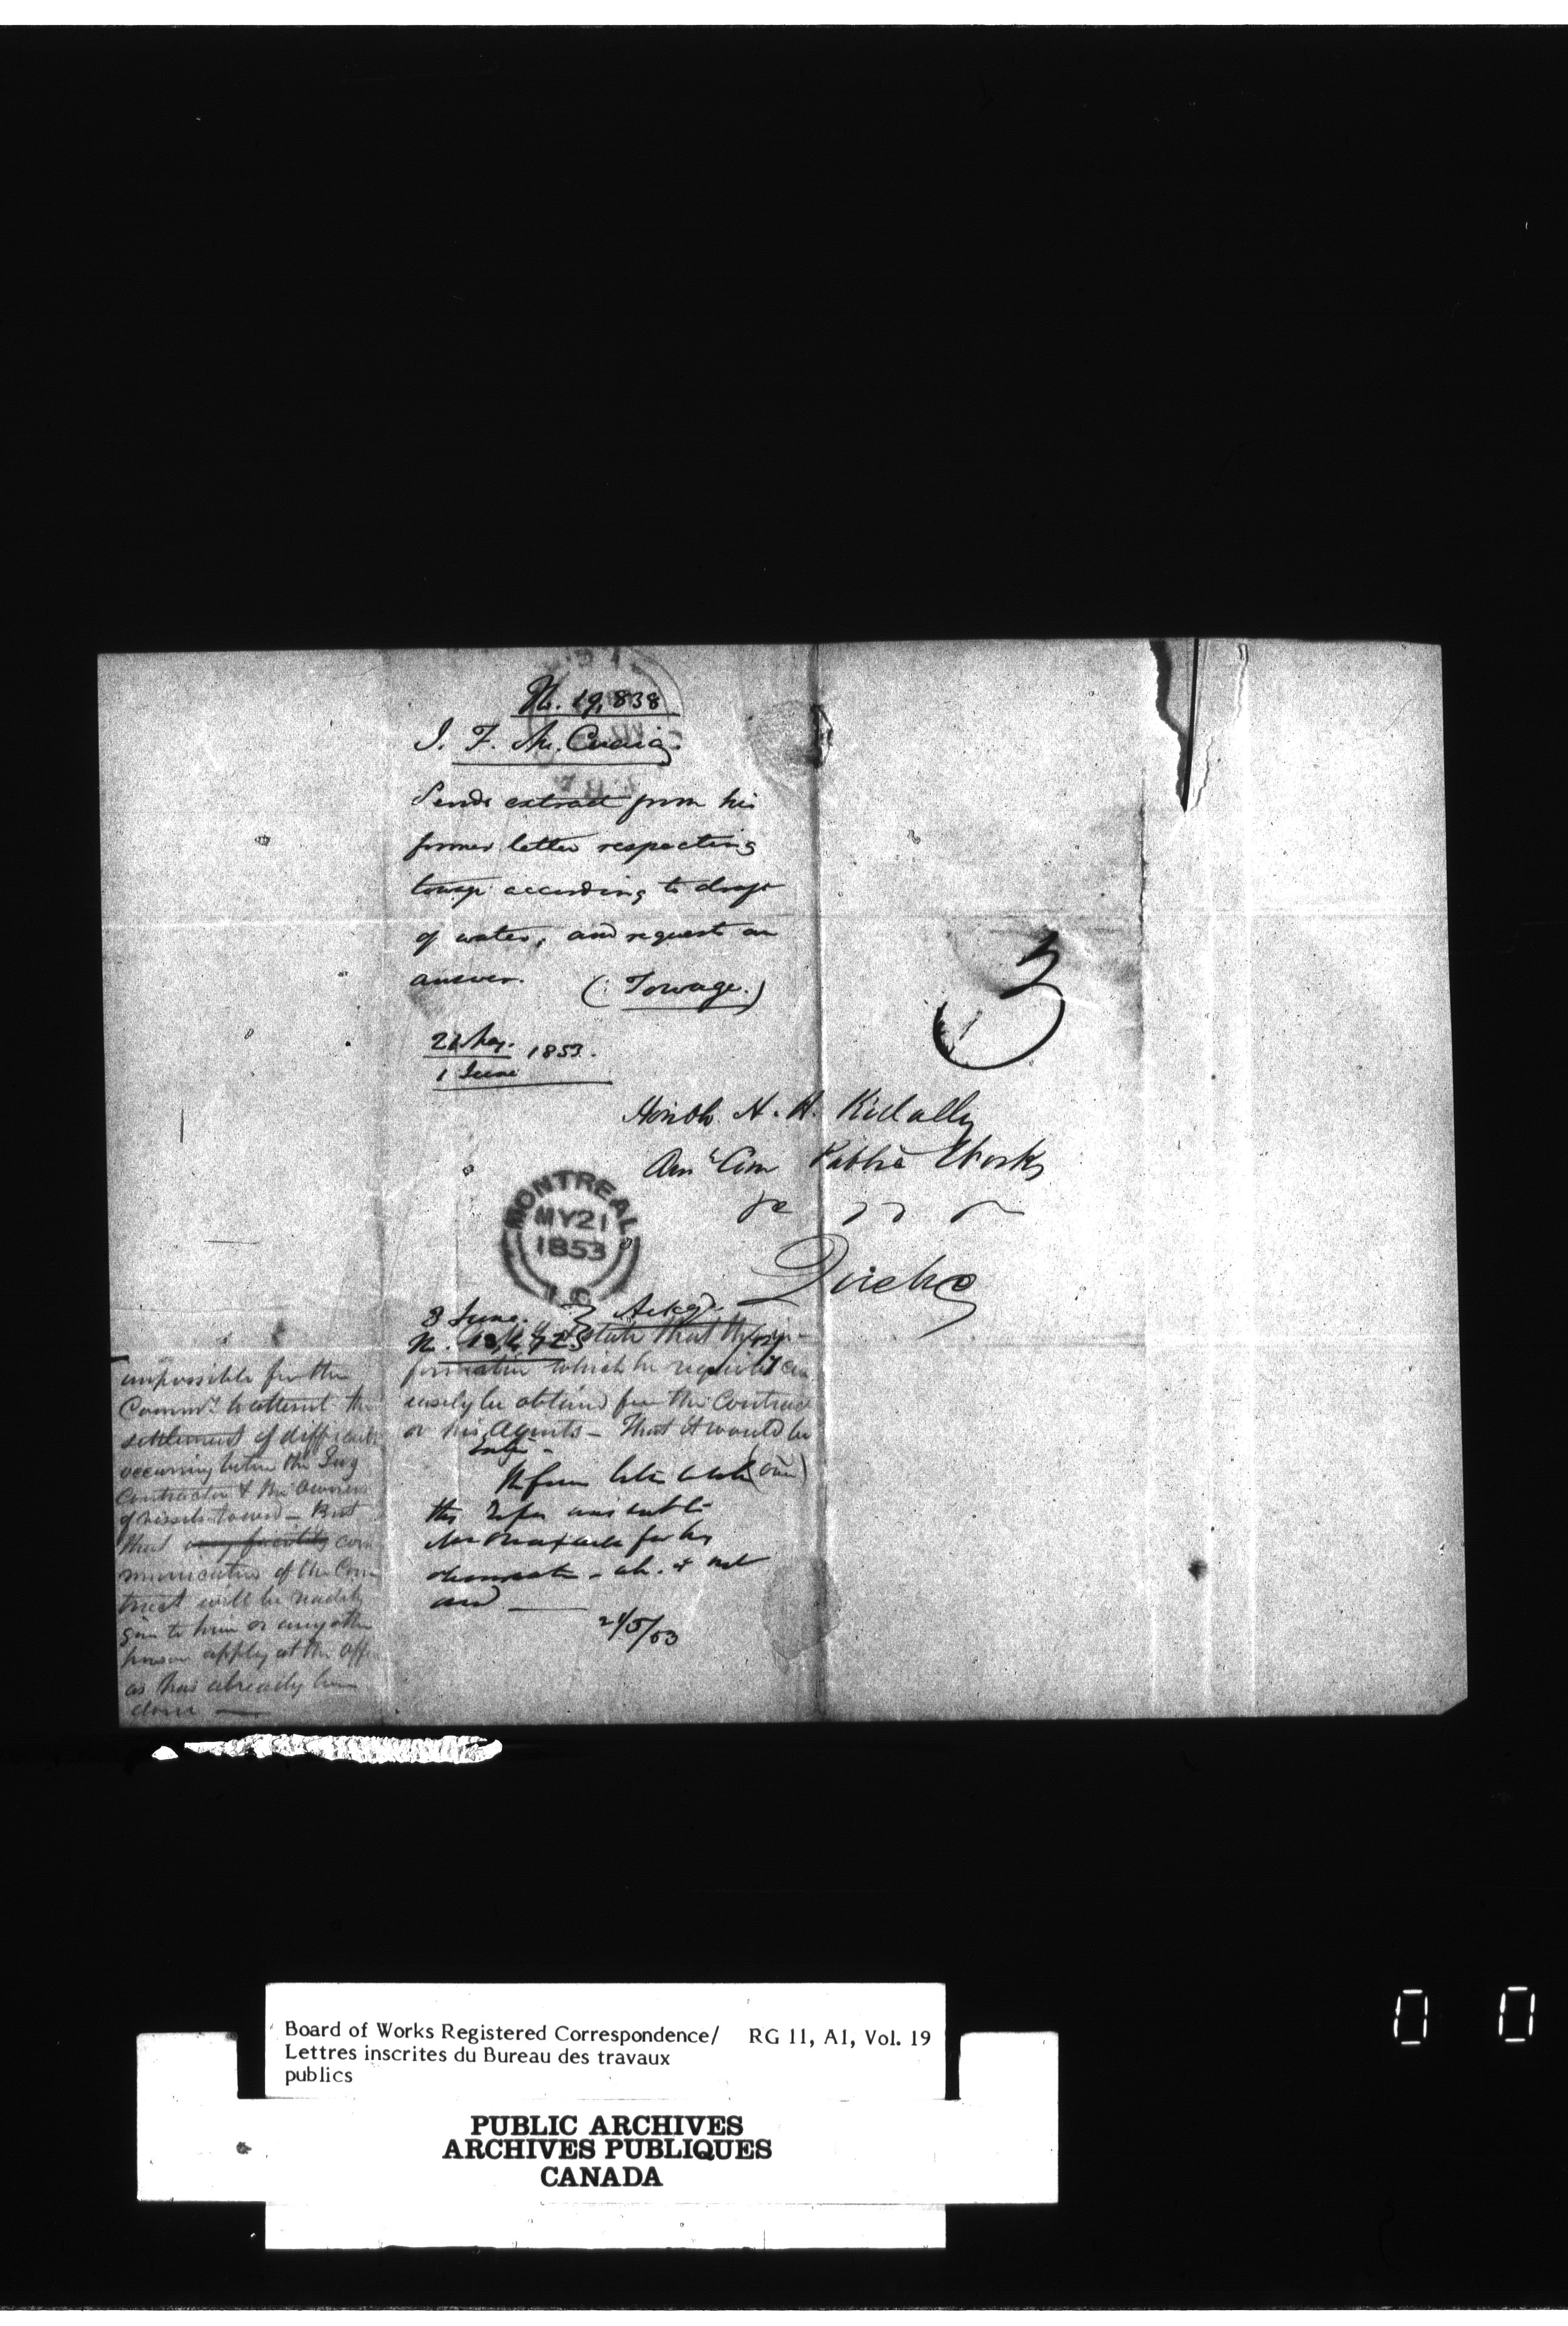 No. 19,838
J. F. McCuaig.
Sends extract from his
former letter respecting
towage according to draft
of water, and requests an
answer. (Towage.)
21 May. 1853.
1 June
3
Honble. H. H. Killaly
Com Public Works
Quebec
MONTREAL
MY 21
1853
L.C.
8 June. Ackgd.
state that the in-
formation which he requires can
easily be obtained from the Contractor
or his Agents - That it would be
impossible for the
Commrs. to attempt the
settlement of difficulties
occurring between the Tug
Contractor & the owners
of vessels towed - But
that any facility com
munication of the Con
tract will be readily
given to him or any other
person apply at the Office
as has already been
done —
Refer
this
and —
24/5/53
Board of Works Registered Correspondence/ RG 11, A1, Vol. 19
Lettres inscrites du Bureau des travaux
publics
PUBLIC ARCHIVES
ARCHIVES PUBLIQUES
CANADA
0 0